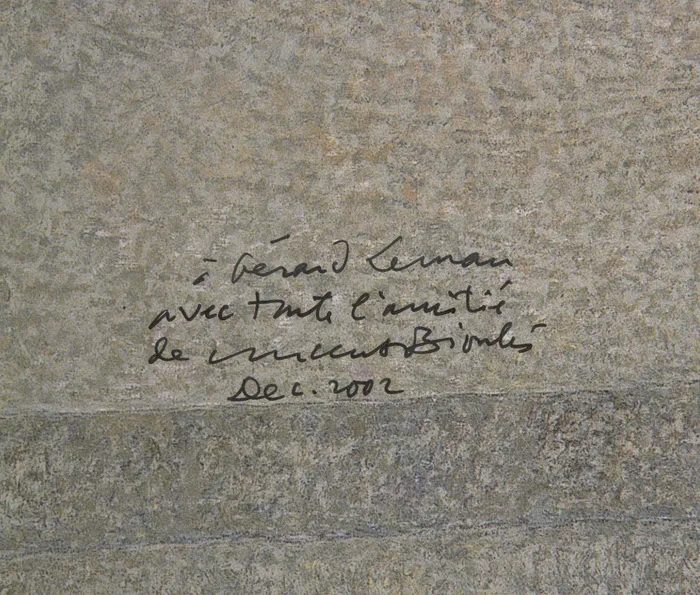 à Gérard Leman
avec toute l'amitié
de Vincent Bioulès
Dec. 2002